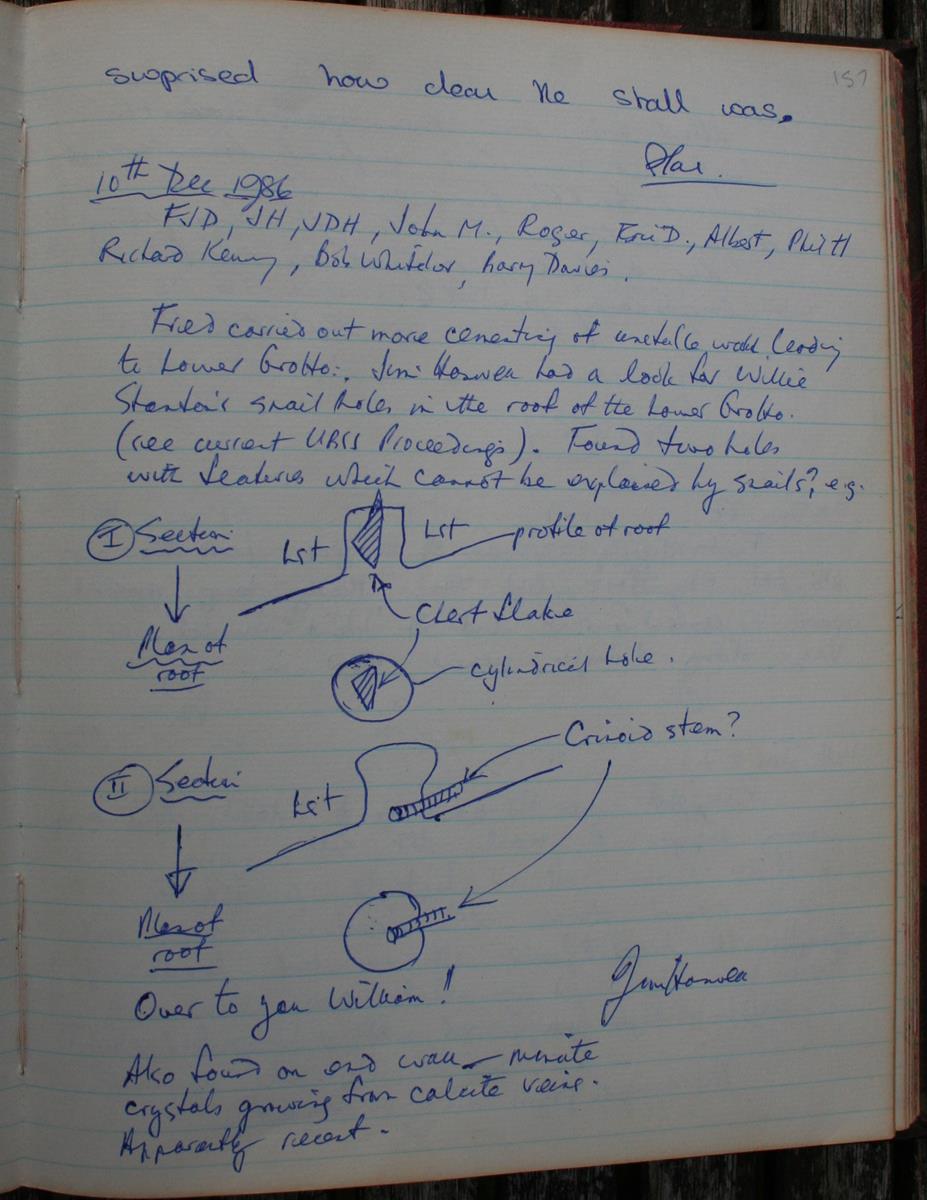 157
surprised how clean the stall was.
10th Dec 1986
FJD, JH, JDH, John M., Roger, Eric D., Albert, Phil H
Richard Kenny, Bob Whitelor, Barry Davies.
Fred carried out more cementing of unstable wall leading
to Lower Grotto. Jim Hanwell had a look for Willie
Stanton's snail holes in the roof of the Lower Grotto.
(see current UBSS Proceedings). Found two holes
with features which cannot be explained by snails? e.g.
I Section
Lst
Lst
profile of roof
Chert flake
Plan of
roof
cylindrical hole.
Crinoid stem?
II Section
Lst
Plan of
roof
Over to you William!
Jim Hanwell
Also found on end wall - minute
crystals growing from calcite veins.
Apparently recent.